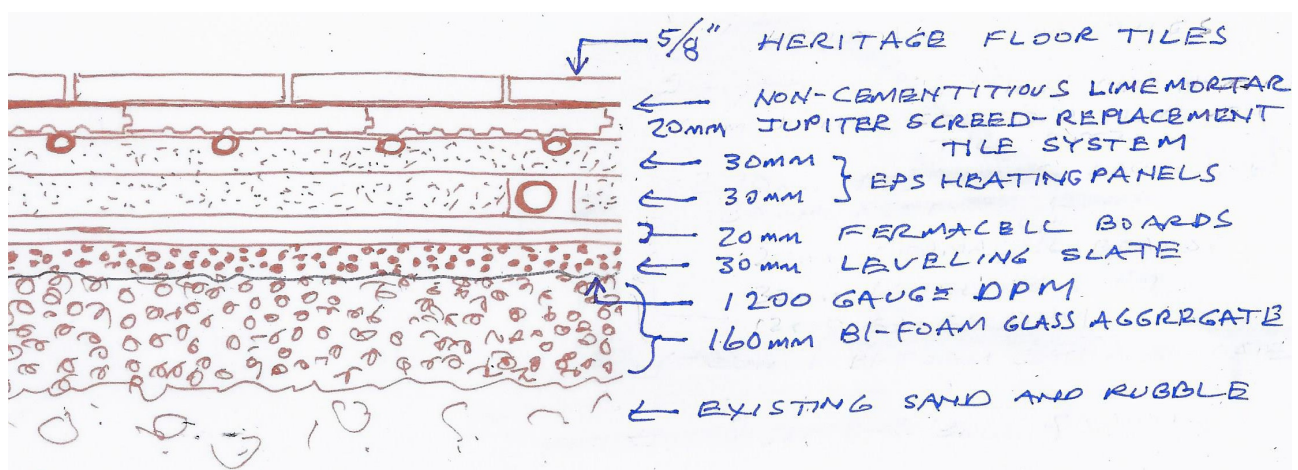 5/8" HERITAGE FLOOR TILES
NON-CEMENTITIOUS LIME MORTAR
20mm JUPITER SCREED-REPLACEMENT
TILE SYSTEM
30mm
30mm } EPS HEATING PANELS
20mm FERMACELL BOARDS
30mm LEVELING SLATE
1200 GAUGE DPM
160mm BI-FOAM GLASS AGGREGATE
EXISTING SAND AND RUBBLE